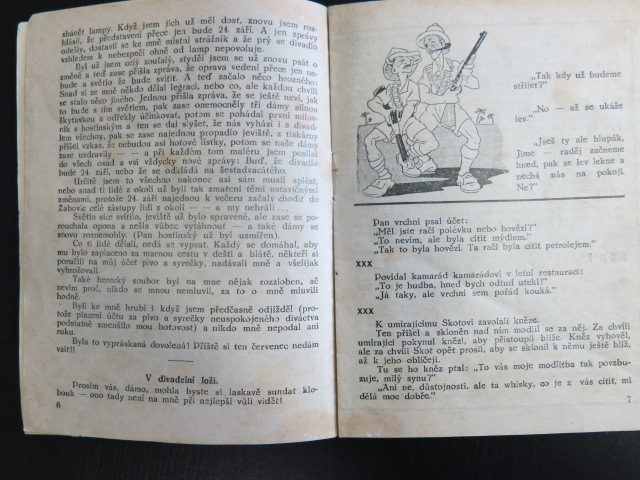 shánět lampy. Když jsem jich už měl dost, znovu jsem roz-
hlásil, že představení přece jen bude 24. září. A jen zprávy
odešly, dostavil se ke mně místní strážník a že prý se divadlo
vzhledem k nebezpečí ohně od lamp nepovoluje.
Byl už jsem celý zoufalý, styděl jsem se už znovu psát o
změně a teď zase přišla zpráva, že oprava vedení přece jen ne-
bude a světlo že bude svítit. A teď začalo něco hrozného:
Snad si ze mně někdo dělal legraci, nebo co, ale každou chvíli
se stalo něco jiného. Jednou přišla zpráva, že se ještě neví, jak
to bude s tím světlem, pak zase onemocněly tři dámy silnou
škytavkou a odřekly účinkovat, potom se pohádal první milov-
ník s hostinským a ten se dal slyšet, že nás vyhází i s divad-
lem všechny, pak se zase najednou propadlo jeviště, z tiskárny
přišel vzkaz, že nebudou asi hotové lístky, potom se naše dámy
zase uzdravily — — a při každém tom maléru jsem posílal
do všech osad a vsí vždycky nové zprávy: Buď, že divadlo
bude 24. září, nebo že se odkládá na šestadvacátého.
Určitě jsem to všechno nakonec asi sám musil splést,
nebo snad ti lidé z okolí už byli tak zmateni těmi ustavičnými
změnami, protože 24. září najednou k večeru začaly chodit do
Žabovic celé zástupy lidí z okolí — — a my nehráli...
Světlo sice svítilo, jeviště už bylo spravené, ale zase se po-
rouchala opona a nešla vůbec vytáhnout — a také dámy se
znovu roznemohly. (Pan hostinský už byl usmířen).
Co ti lidé dělali, nedá se vypsat. Každý se domáhal, aby
mu bylo zaplaceno za marnou cestu v dešti a blátě, někteří si
poručili na můj účet pivo a syrečky, nadávali mně a všelijak
vyhrožovali.
Také herecký soubor byl na mne nějak rozzloben, ač
nevím proč, nikdo se mnou nemluvil, za to o mně mluvili
hodně.
Byli ke mně hrubí i když jsem předčasně odjížděl (pro-
tože placení účtu za pivo a syrečky neuspokojeného diváctva
podstatně zmenšilo mou hotovost) a nikdo mně nepodal ani
ruku.
Byla to vypráskaná dovolená! Příště si ten červenec nedám
vzít!
V divadelní loži.
Prosím vás, dámo, mohla byste si laskavě sundat klo-
bouk — ono tady není na mně při nejlepší vůli vidět!
6
„Tak kdy už budeme
střílet?"
„No — až se ukáže
lev."
„Jseš ty ale hlupák,
Jime — raděj začneme
hned, pak se lev lekne a
nechá nás na pokoji.
Ne?"
Pan vrchní psal účet:
„Měl jste račí polévku nebo hovězí?"
„To nevím, ale byla cítit mýdlem."
„Tak to byla hovězí. Ta račí byla cítit petrolejem."
XXX
Povídal kamarád kamarádovi v letní restauraci:
„To je hudba, hneď bych odtud utekl!"
„Já taky, ale vrchní sem pořád kouká."
XXX
K umírajícímu Skotovi zavolali kněze.
Ten přišel a skloněn nad ním modlil se za něj. Za chvíli
umírající pokynul knězi, aby přistoupil blíže. Kněz vyhověl,
ale za chvíli Skot opět prosil, aby se sklonil k němu ještě blíž,
až k jeho obličeji.
Tu se ho kněz ptal: „To vás moje modlitba tak povzbu-
zuje, milý synu?"
„Ani ne, důstojnosti, ale ta whisky, co je z vás cítit, mi
dělá moc dobře."
7